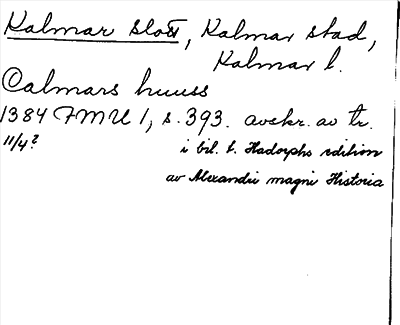 Kalmar slott, Kalmar stad,
Kalmar l.
Calmars huuss
1384 FMU 1, s. 393. avskr. av tr.
11/4? i bil. t. Hadorphs edition
av Alexandri magni Historia